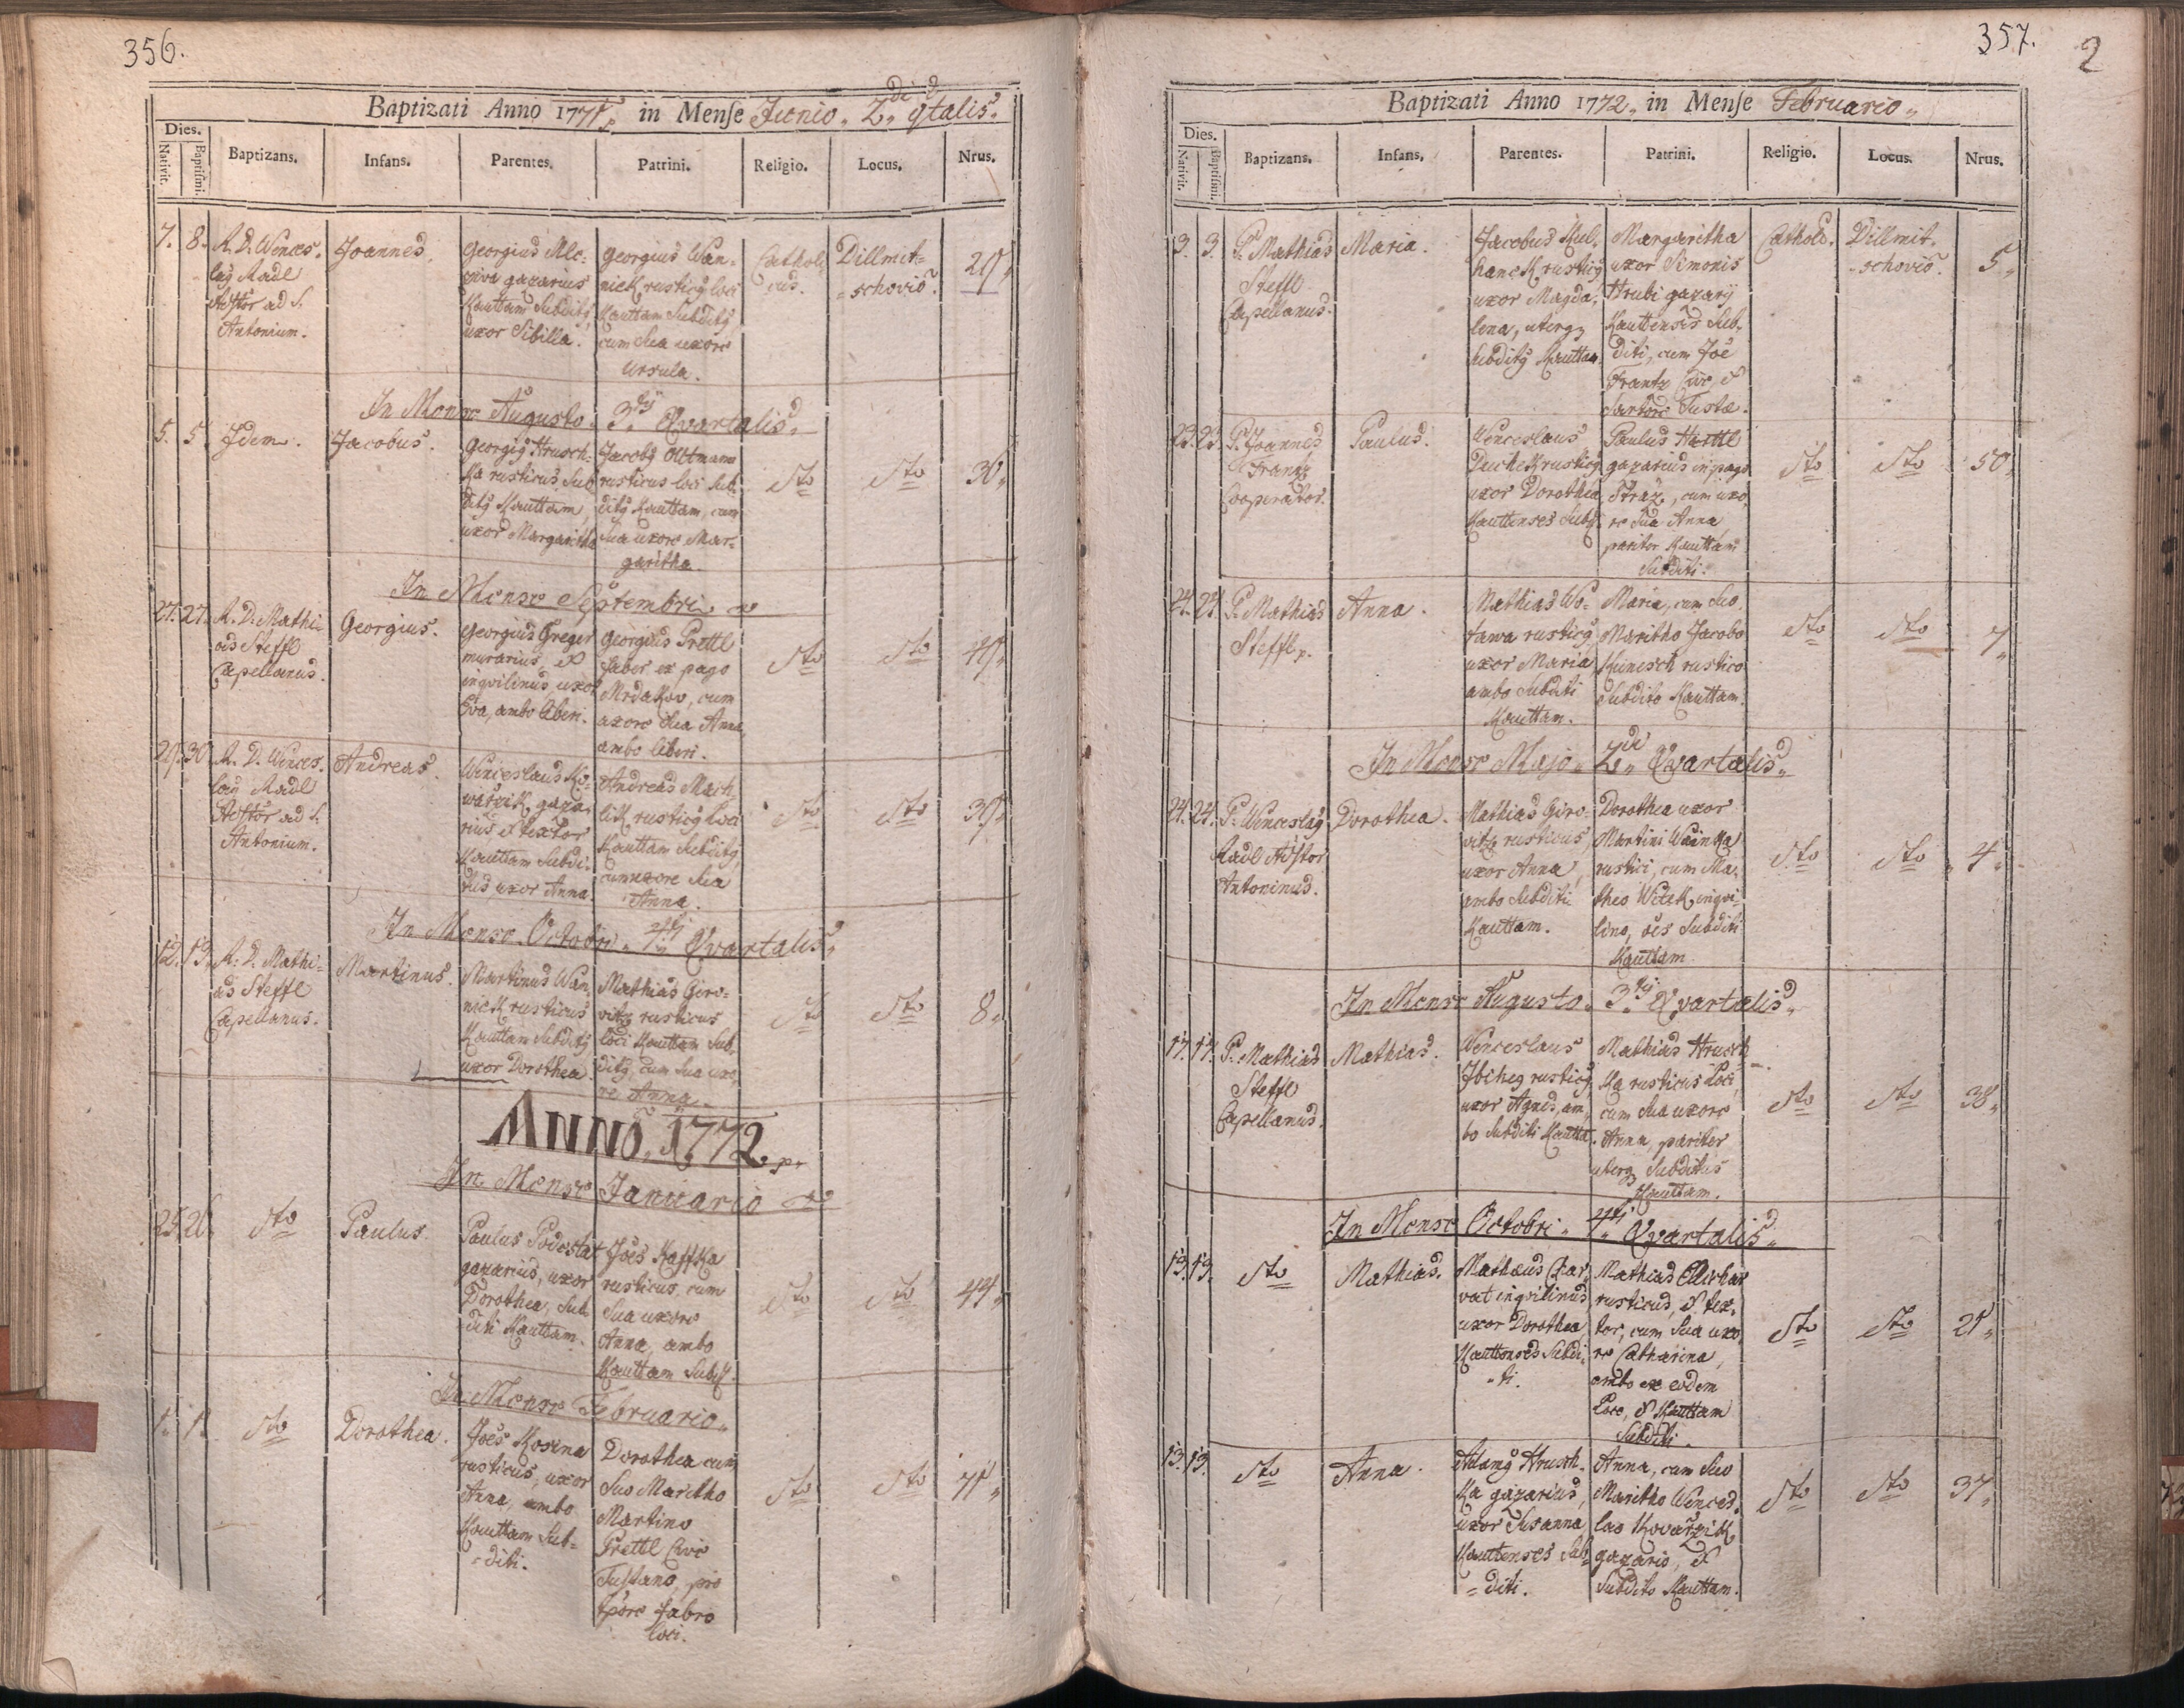 356.
Baptizati Anno 1771 in Menſe Junio. 2di qtalis.
Dies.
Nativit. Baptiſmi. Baptizans. Infans. Parentes. Patrini. Religio. Locus. Nrus.
7. 8. A. D. Wences-
laÿ Radl
Adſtor ad S.
Antonium.
Joannes.
Georgius
gazarius
Kauttam Subditÿ
uxor Sibilla.
Georgius Wan-
nick rusticÿ loci
Kauttam Subditÿ
cum Sua uxore
Ursula.
Catholi-
cus.
Dillmit-
schovis.
In Mense Augusto. 3tÿ Qvartalis.
5. 5. Idem.
Jacobus.
Georgiÿ Hrusch-
ka rusticus Sub-
ditÿ Kauttam,
uxor Margaritha
Jacobÿ Oltmann
rusticus loci Sub-
ditÿ Kauttam, cum
Sua uxore Mar-
garitha.
dto
dto
36.
In Mense Septembri
27. 27. A. D. Mathi-
as Steffl
Capellanus.
Georgius.
Georgius Greger
murarius, et
inqvilinus, uxor
Eva, ambo liberi.
Georgius Prettl
faber ex pago
Mrdakov, cum
uxore Sua Anna,
ambo liberi.
dto
dto
29. 30. A. D. Wences-
laÿ Radl
Adſtor ad S.
Antonium.
Andreas.
Wenceslaus Ko-
wařzik gaza-
rius et textor
Kauttam Subdi-
tus, uxor Anna.
Andreas Mach-
lik rusticÿ loci
Kauttam Subditÿ
cum uxore Sua
Anna.
dto
dto
In Mense Octobri. 4ti Qvartalis.
12. 13. A. D. Mathi-
as Steffl
Capellanus.
Martinus.
Martinus Wan-
nick rusticus
Kauttam Subditÿ
uxor Dorothea.
Mathias Giro-
vitz rusticus
loci Kauttam Sub-
ditÿ, cum Sua uxo-
re Anna.
dto
dto
8.
ANNO. 1772.
In Mense Januario
25. 26. dto
Paulus
Paulus Podestát
gazarius, uxor
Dorothea, Sub-
diti Kauttam.
Joes Kaffka
rusticus, cum
Sua uxore
Anna, ambo
Kauttam Subd
dto
dto
44.
In Mense Februario.
1. 1. dto
Dorothea.
Joes Kosina
rusticus, uxor
Anna, ambo
Kauttam Sub-
diti.
Dorothea cum
Suo Maritho
Martino
Prettl Cive
Tustano, pro
tpore fabro
loci.
dto
dto
357.
2
Baptizati Anno 1772. in Menſe Februario.
Dies.
Nativit. Baptiſmi. Baptizans. Infans. Parentes. Patrini. Religio. Locus. Nrus.
3. 3. P. Mathias
Steffl
Capellanus.
Maria.
Jacobus Kul-
hanek rusticÿ
uxor Magda-
lena, uterq
Subditÿ Kauttam
Margaritha
uxor Simonis
Hrubi gazarÿ
Kauttensis Sub-
diti, cum Joe
Frantz Cive et
Sartore Tustæ.
Catholi.
Dillmit-
schovis.
5.
23. 23. P. Joannes
Frantz
Cooperator.
Paulus.
Wenceslaus
Duchek rusticÿ
uxor Dorothea,
Kauttenses Subd
Paulus Harttl
gazarius in pago
Stráz, cum uxo-
re Sua Anna
pariter Kauttam
Subditi.
dto
dto
50.
24. 24. P. Mathias
Steffl
Anna.
Mathias Wo-
tawa rusticÿ
uxor Maria
ambo Subditi
Kauttam.
Maria, cum Suo
Maritho Jacobo
Kunesch rustico
Subdito Kauttam.
dto
dto
7.
In Mense Majo. 2di Qvartalis.
24. 24. P. Wenceslaÿ
Radl Adſtor
Antoninus.
Dorothea.
Mathias Giro-
vitz rusticus,
uxor Anna,
ambo Subditi
Kauttam.
Dorothea uxor
Martini Wainka
rustici, cum Ma-
theo Witek inqvi-
lino, oes Subditi
Kauttam
dto
dto
4.
In Mense Augusto. 3tÿ Qvartalis.
17. 17. P. Mathias
Steffl
Capellanus.
Mathias.
Wenceslaus
rusticÿ,
uxor Agnes, am-
bo Subditi Kautta.
Mathias Hrusch-
ka rusticus Loci,
cum Sua uxore
Anna, pariter
uterq Subditus
Kauttam.
dto
dto
38.
In Mense Octobri. 4ti Qvartalis.
13. 13. dto
Mathias.
Mathæus Char-
vat inqvilinus
uxor Dorothea,
Kauttenses Subdi-
ti.
Mathias
rusticus, et tex-
tor, cum Sua uxo-
re Catharina,
ambo ex eodem
Loco, et Kauttam
Subditi.
dto
dto
13. 13. dto
Anna.
Adamÿ Hrusch-
ka gazarius,
uxor Susanna
Kauttenses Sub-
diti.
Anna, cum Suo
Maritho Wences-
lao Kovařzik
gazario, et
Subdito Kauttam.
dto
dto
37.